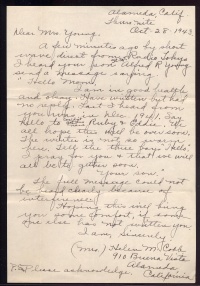 Alameda, Calif
Thurs. nite
Oct 28 1943
Dear Mrs Young,
A few minutes ago by short
wave, direct from Radio Tokyo
I heard your son Alfred R Young
send a message saying:
"Hello Mom,
I am in good health
and okay. Have written but had
no reply. Last I heard from
you was in Dec 1941. Say
Hello to Ruby & Eddie. We
all hope this will be over soon.
The writer is not so scarce
here. Tell the three boys "Hello"
I pray for you & that we will
all be together soon.
Your son."
The full message could not
be read clearly because of
interference.
Hoping this will bring
you some comfort, if some
one else has not written you
I am, Sincerely
(Mrs.) Helen M. Cobb
910 Buena Vista
Alameda
California
P.S. Please acknowledge